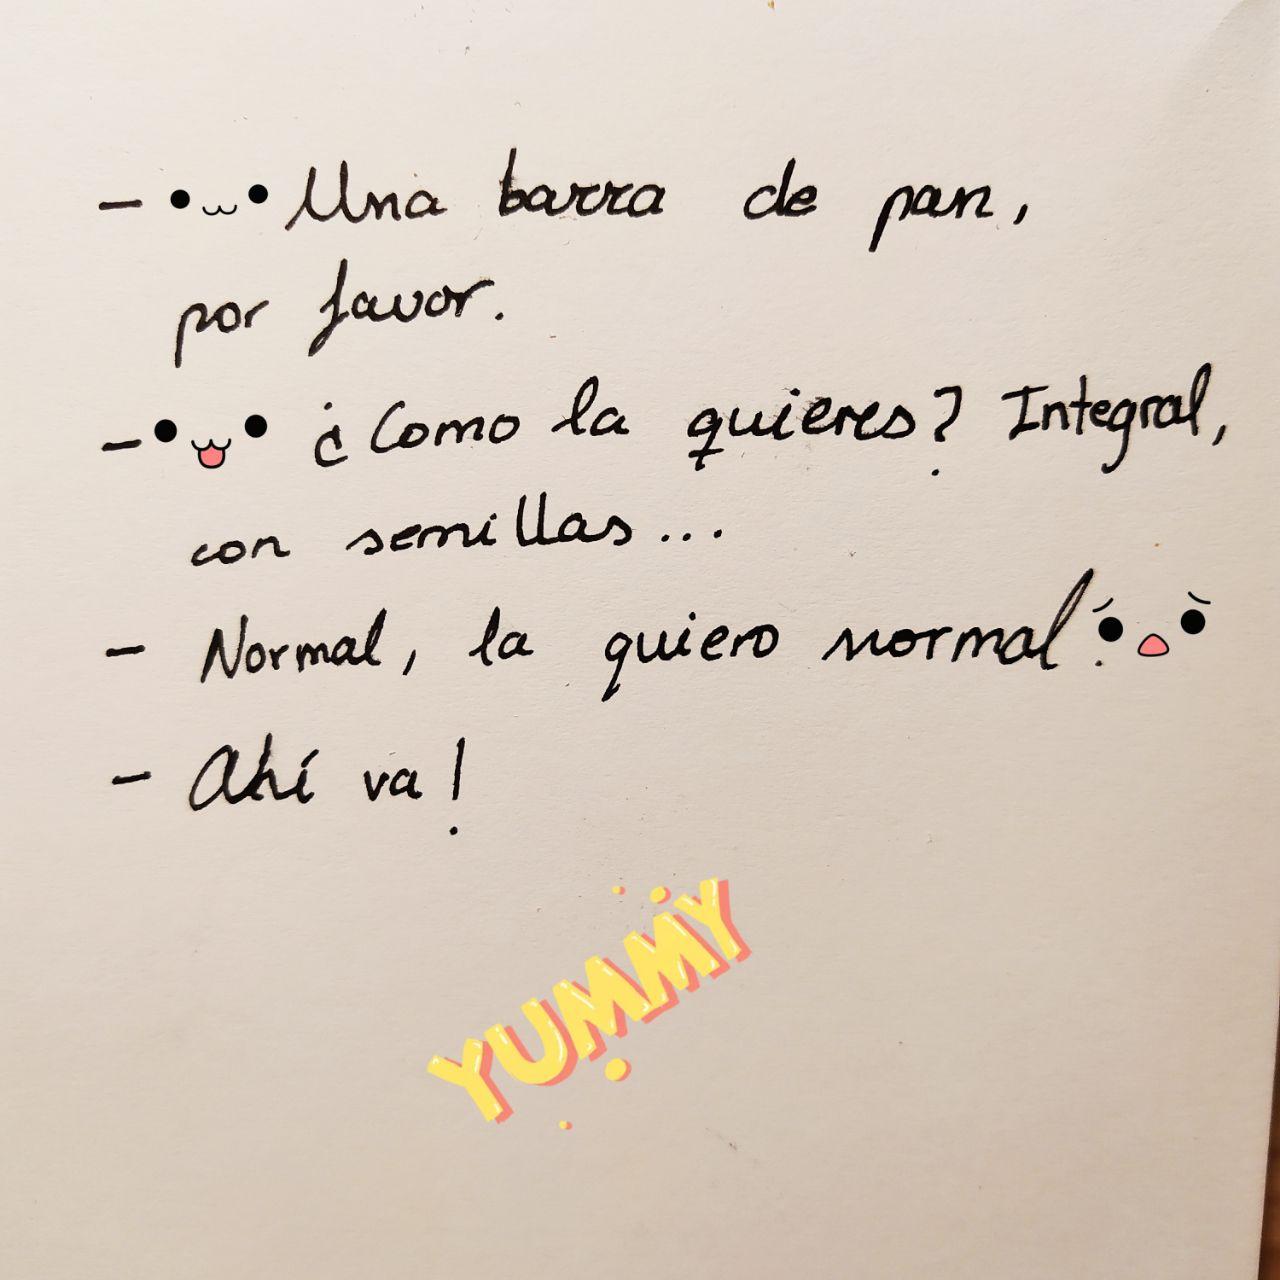 - Una barra de pan,
por favor.
- ¿Como la quieres? Integral,
con semillas...
- Normal, la quiero normal.
- Ahí va!
YUMMY